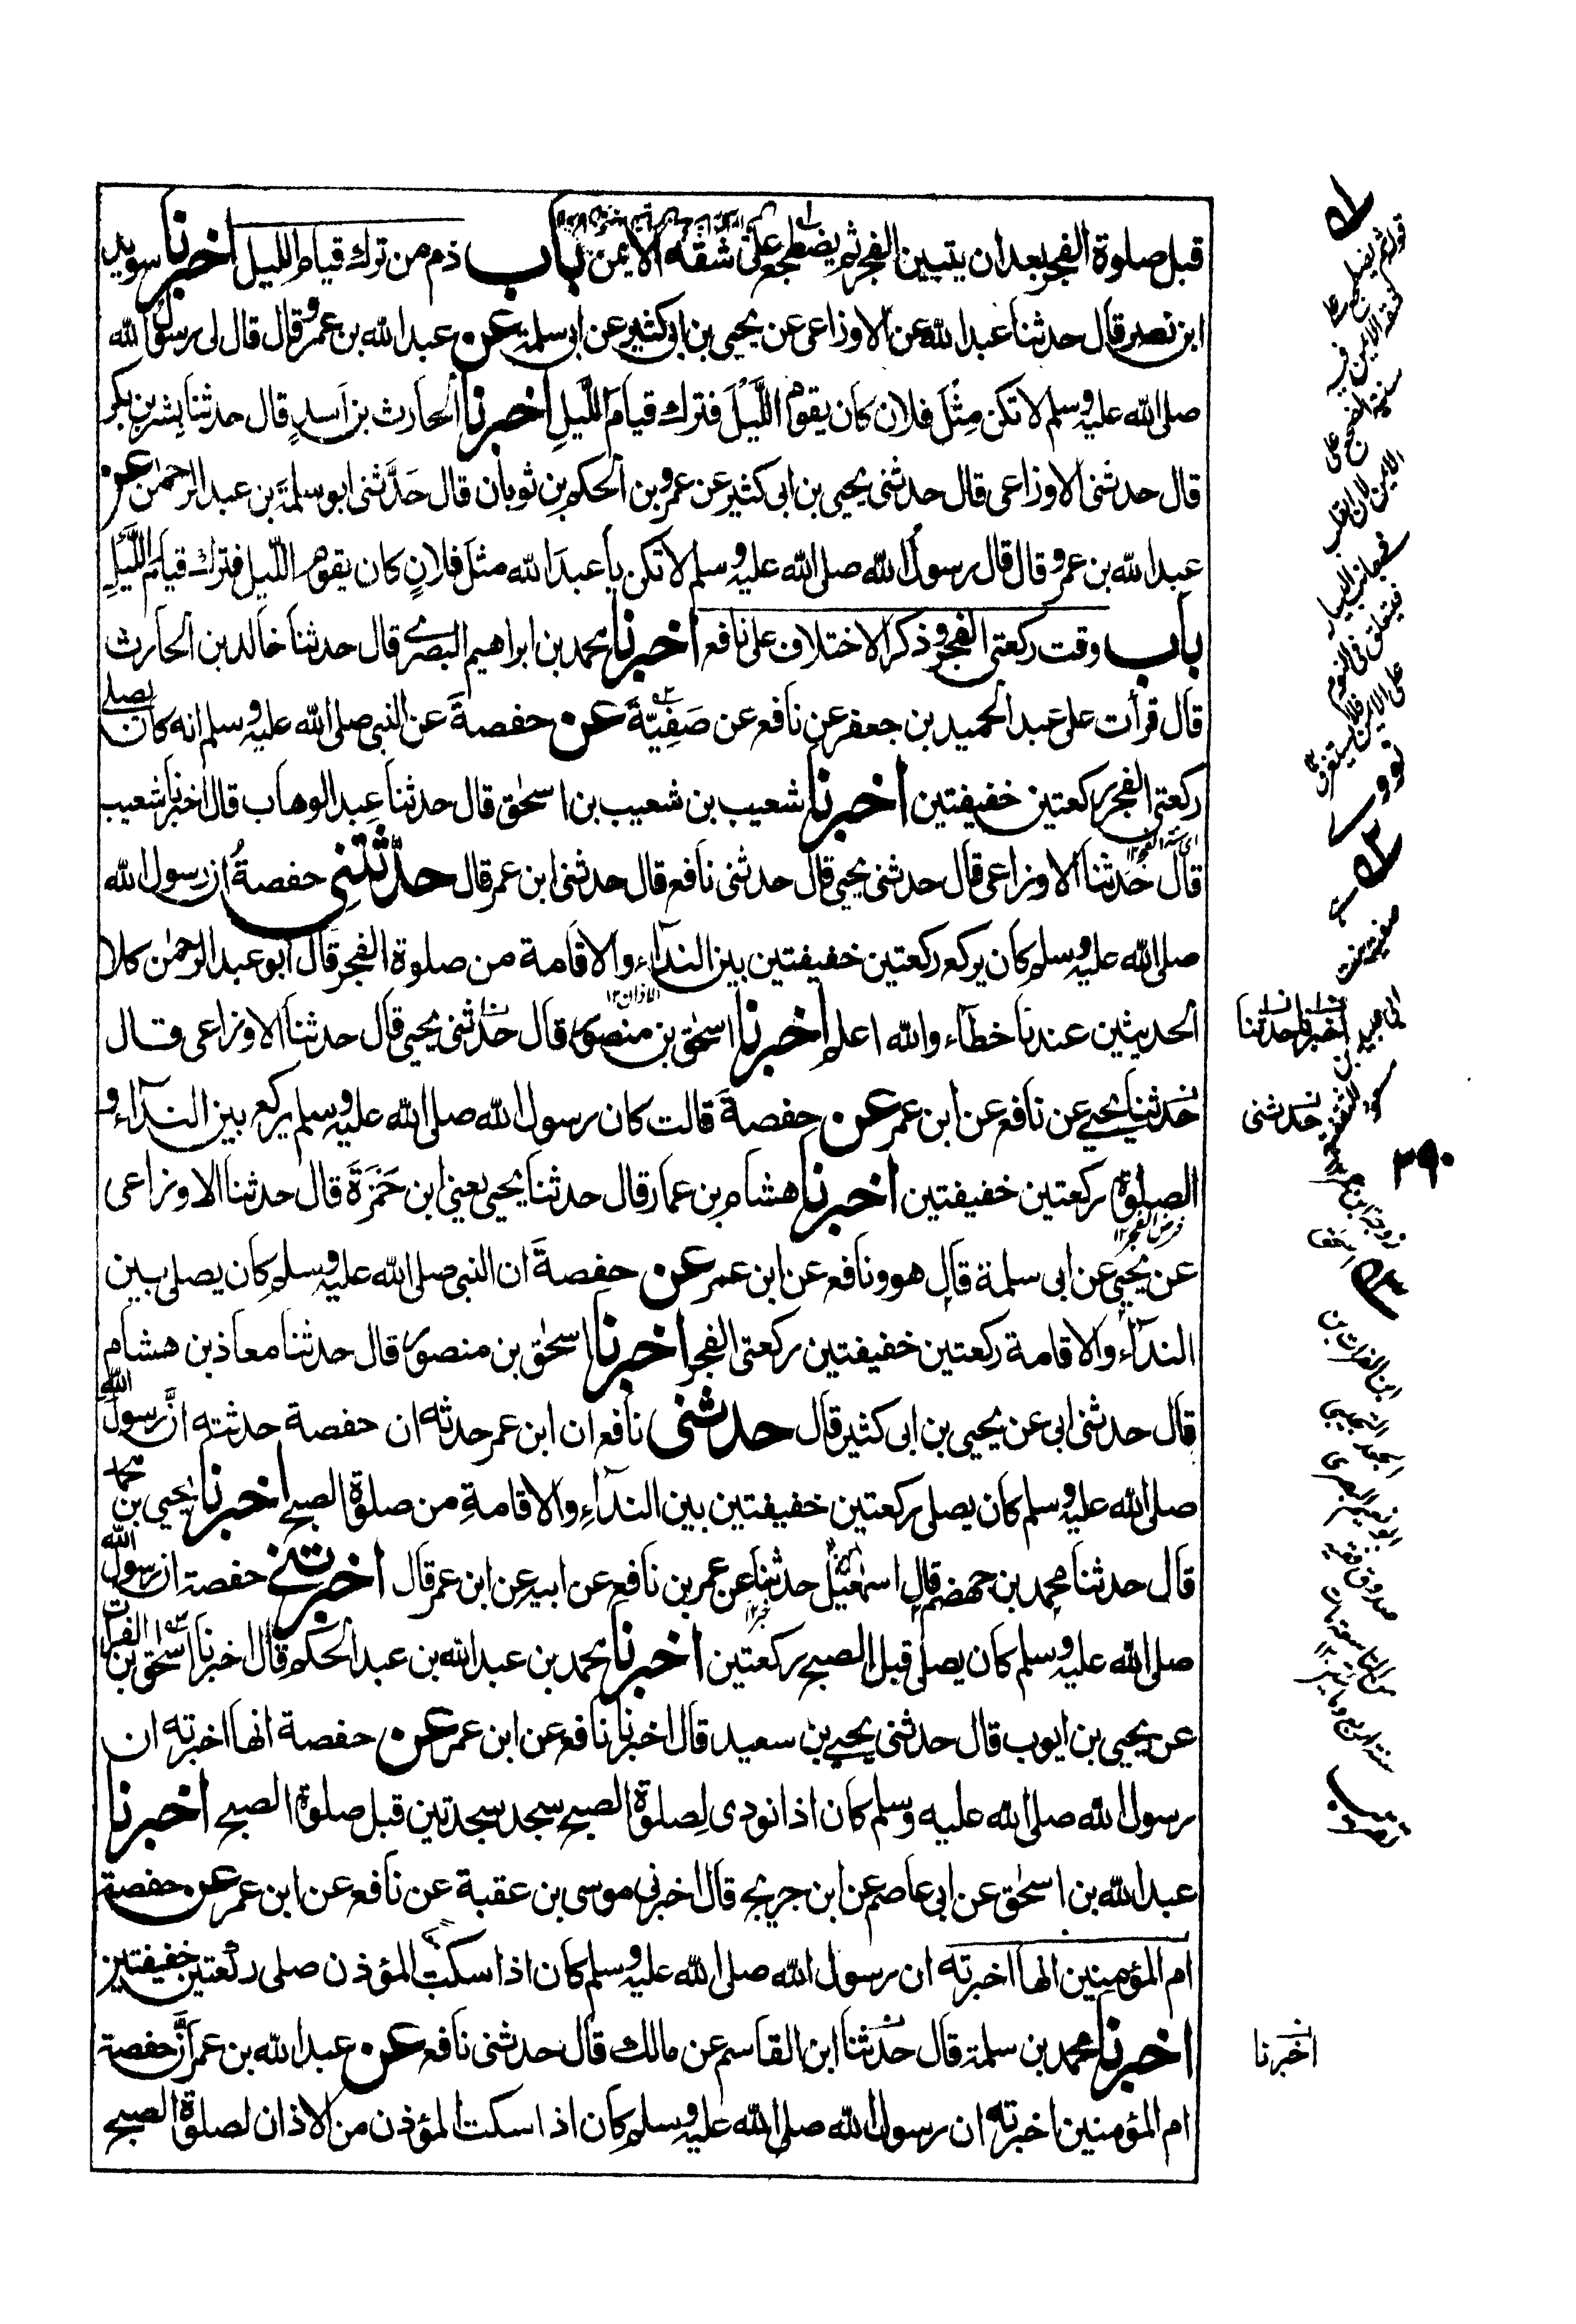 قبل صلوة الفجر بعد ان يتبين الفجر ثم يضطجع على شقه الايمن باب ذم من ترك قيام الليل اخبرنا سويد
ابن نصر قال حدثنا عبد الله عن الاوزاعى عن يحيى بن ابى كثير عن ابى سلمة عن عبد الله بن عمرو قال قال لى رسول الله
صلى الله عليه وسلم لا تكن مِثْلَ فلان كان يقوم اللَّيْلَ فترك قيامَ اللَّيلِ اخبرنا الحارث بن اَسدٍ قال حدثنا بشر بن بكر
قال حدثنى الاوزاعى قال حدثنى يحيى بن ابى كثير عن عمرو بن الحكم بن ثوبان قال حَدَّثنى ابو سلمةَ بن عبد الرحمٰن عن
عبد الله بن عمرو قال قال رسولُ الله صلى الله عليه وسلم لا تكن يا عبدَ الله مثلَ فلانٍ كان يقوم الليل فترك قيامَ اللَّيلِ
باب وقت ركعتى الفجر وذكر الاختلاف على نافع اخبرنا محمد بن ابراهيم البصرى قال حدثنا خالد بن الحارث
قال قرأت على عبد الحميد بن جعفر عن نافع عن صَفِيَّةَ عن حفصةَ عن النبى صلى الله عليه وسلم انه كان يصلى
ركعتى الفجر ركعتين خفيفتين اخبرنا شعيب بن شعيب بن اسحٰق قال حدثنا عبد الوهاب قال اخبرنا شعيب
قال حدثنا الاوزاعى قال حدثنى يحيى قال حدثنى نافع قال حدثنى ابن عمر قال حدّثتنى حفصةُ ان رسول الله
صلى الله عليه وسلم كان يركع ركعتين خفيفتين بين النداء والاقامة من صلوة الفجر قال ابو عبد الرحمٰن كلا
الحديثين عندنا خطاء والله اعلم اخبرنا اسحٰق بن منصور قال حدثنى يحيى قال حدثنا الاوزاعى قال
اخبرنا حدثنا
حدثنا يحيى عن نافع عن ابن عمر عن حفصةَ قالت كان رسول الله صلى الله عليه وسلم يركع بين النداء و
حدثنى
٣٩٠
الصلوة ركعتين خفيفتين اخبرنا هشام بن عمار قال حدثنا يحيى يعنى ابن حَمْزَةَ قال حدثنا الاوزاعى
عن يحيى عن ابى سلمة قال هو ونافع عن ابن عمر عن حفصةَ ان النبى صلى الله عليه وسلم كان يصلى بين
النداء والاقامة ركعتين خفيفتين ركعتى الفجر اخبرنا اسحٰق بن منصور قال حدثنا معاذ بن هشام
قال حدثنى ابى عن يحيى بن ابى كثير قال حدثنى نافع ان ابن عمر حدثه ان حفصة حدثته انَّ رسولَ الله
صلى الله عليه وسلم كان يصلى ركعتين خفيفتين بين النداءِ والاقامةِ من صلوة الصبح اخبرنا يحيى بن محمد
قال حدثنا محمد بن جهضم قال اسمٰعيل حدثنا عن عمر بن نافع عن ابيه عن ابن عمر قال اخبرتنى حفصة ان رسول الله
صلى الله عليه وسلم كان يصلى قبل الصبح ركعتين اخبرنا محمد بن عبد الله بن عبد الحكم قال اخبرنا اسحٰق بن الفرات
عن يحيى بن ايوب قال حدثنى يحيى بن سعيد قال اخبرنا نافع عن ابن عمر عن حفصة انها اخبرته ان
رسول الله صلى الله عليه وسلم كان اذا نودى لصلوة الصبح سجد سجدتين قبل صلوة الصبح اخبرنا
عبد الله بن اسحٰق عن ابى عاصم عن ابن جريج قال اخبرنى موسى بن عقبة عن نافع عن ابن عمر عن حفصة
ام المؤمنين انها اخبرته ان رسول الله صلى الله عليه وسلم كان اذا سكت المؤذن صلى ركعتين خفيفتين
اخبرنا محمد بن سلمة قال حدثنا ابن القاسم عن مالك قال حدثنى نافع عن عبد الله بن عمر انَّ حفصة
اخبرنا
ام المؤمنين اخبرته ان رسول الله صلى الله عليه وسلم كان اذا سكت المؤذن من الاذان لصلوة الصبح